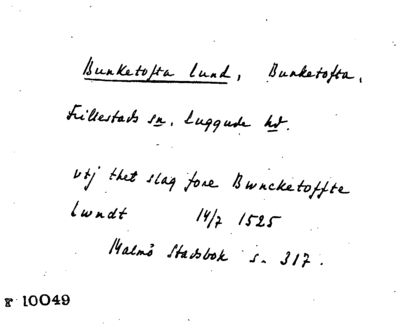 Bunketofta lund, Bunketofta,
Fillestads sn, Luggude hd.
vtj thet slag fore Bwncketoffte
lwndt 14/7 1525
Malmö Stadsbok s. 317.
F 10049